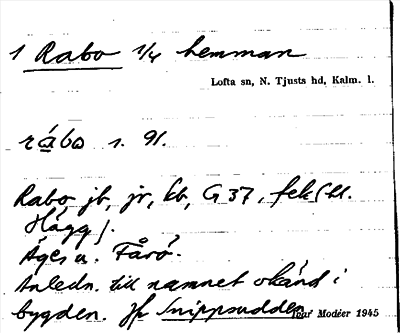 1 Rabo 1/4 hemman
Lofta sn, N. Tjusts hd, Kalm. l.
rábo s. 91.
Rabo jb, jr, kb, G 37, fek (bl.
Hägg).
Äges u. Fårö.
Anledn. till namnet okänd i
bygden. Jfr Snippsudden
Ivar Modéer 1945